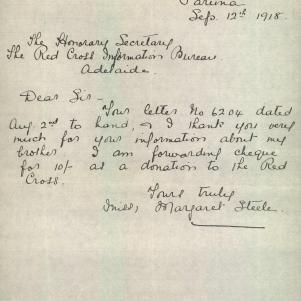 Paruna
Sep. 12th 1918.
The Honorary Secretary
The Red Cross Information Bureau
Adelaide.
Dear Sir -
Your letter No 6204 dated
Aug. 2nd to hand, & I thank you very
much for your information about my
brother. I am forwarding cheque
for 10/- as a donation to the Red
Cross.
Yours truly
(Miss) Margaret Steele.